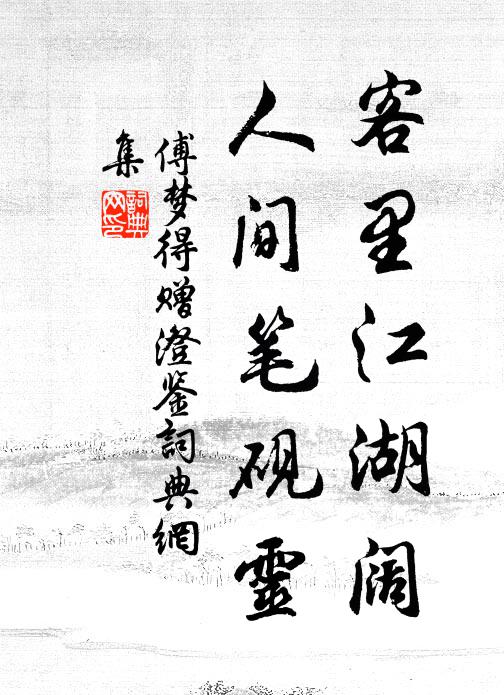 客里江湖阔
人间笔砚靈
傅梦得赠澄鉴詞典網
集
詞典
网印